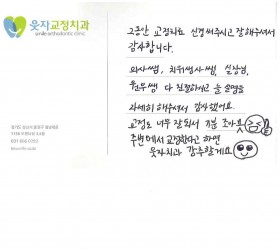 웃자교정치과
smile orthodontic clinic
그동안 교정치료 신경써주시고 잘해주셔서
감사합니다.
의사쌤, 치위생사쌤, 실장님,
원무쌤 다 친절하시고 늘 설명을
자세히 해주셔서 감사했어요.
교정도 너무 잘되서 기분 좋아요
주변에서 교정한다고 하면
웃자치과 강추할게요